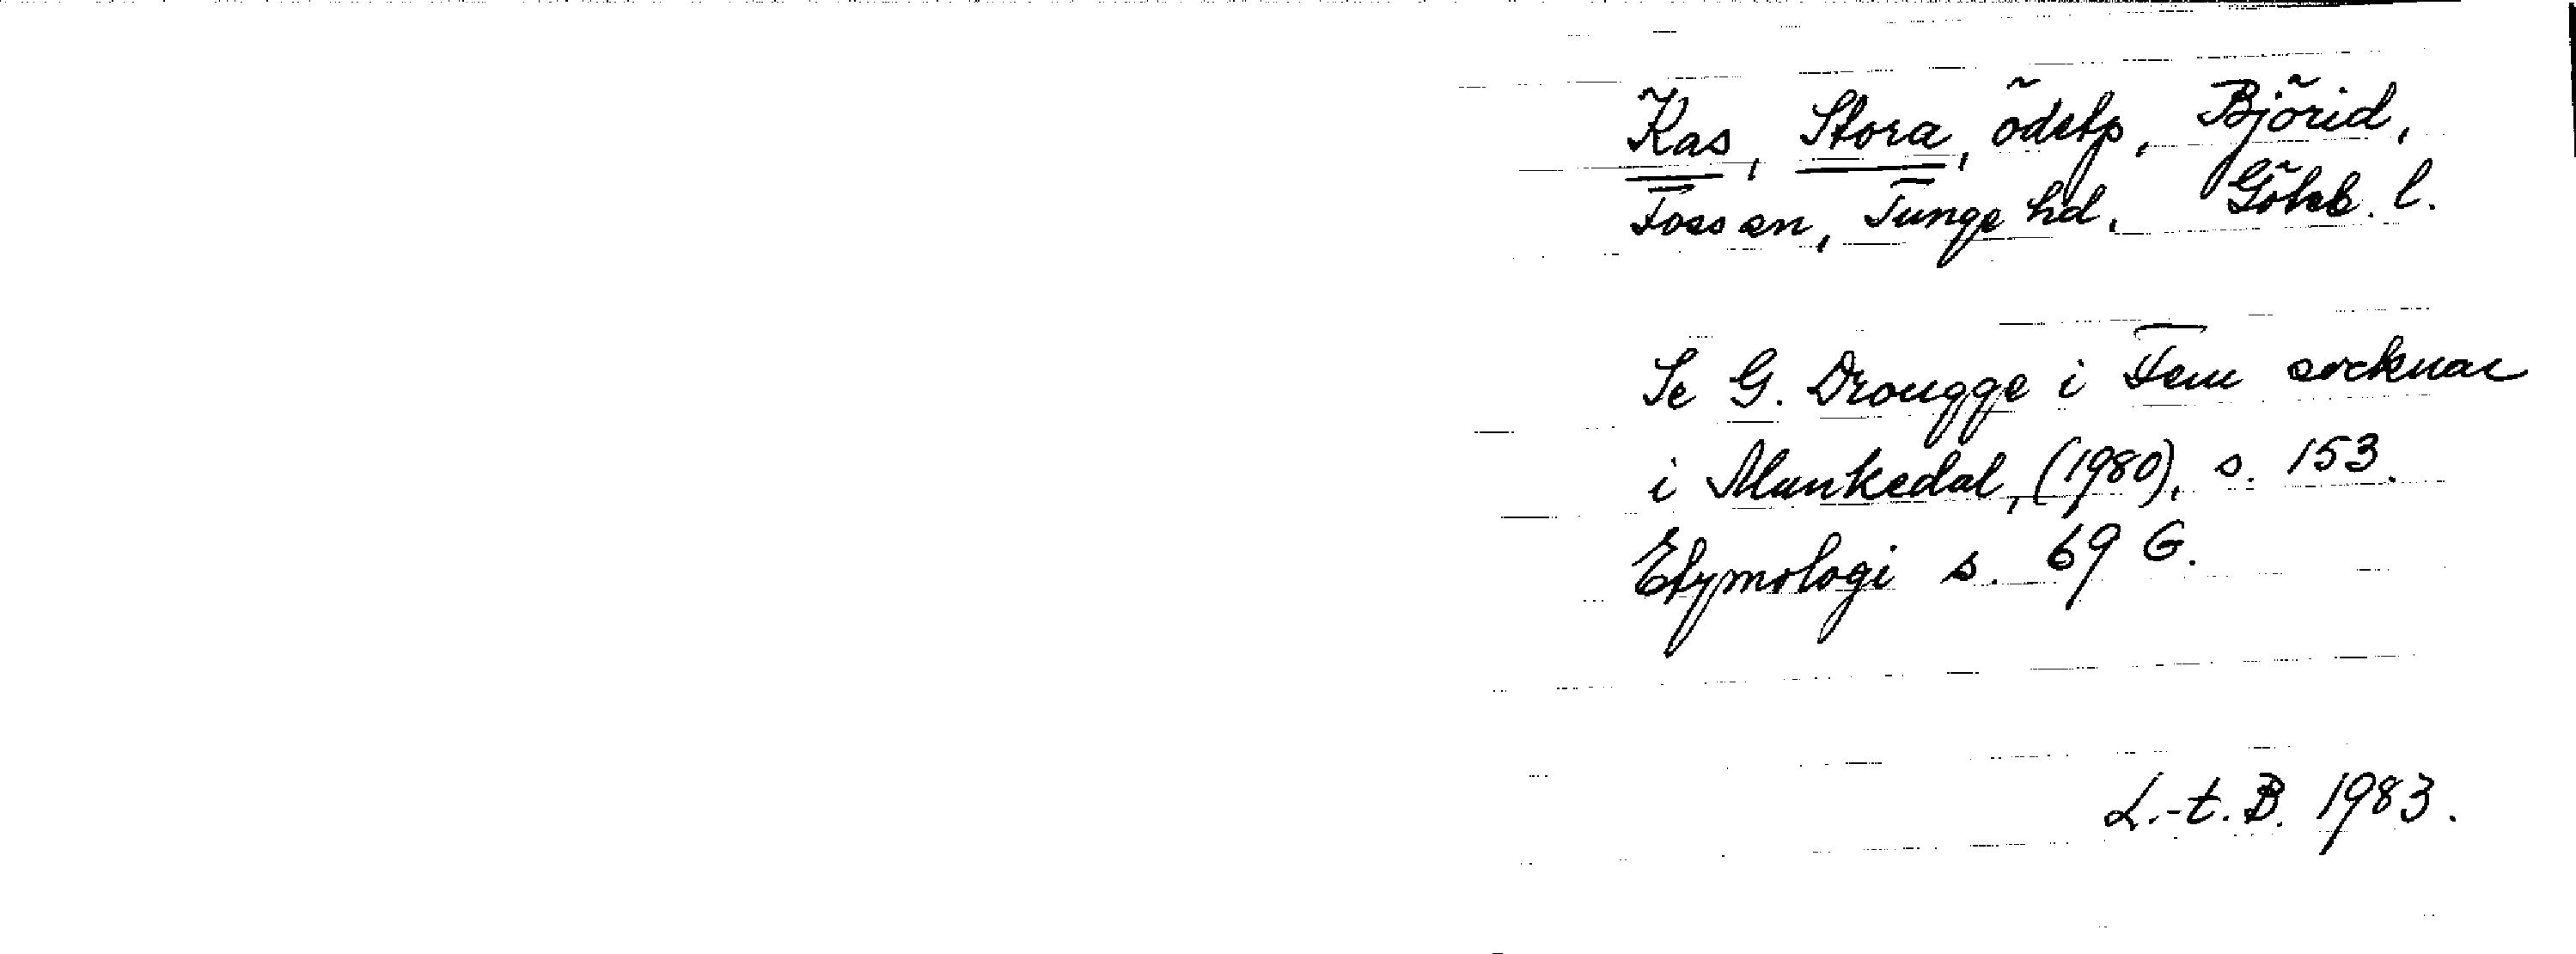 Kas, Stora, ödetp, Björid,
Foss sn, Tunge hd, Göteb. l.
Se G. Drougge i Fem socknar
i Munkedal, (1980), s. 153.
Etymologi s. 69 G.
L.-t. B. 1983.